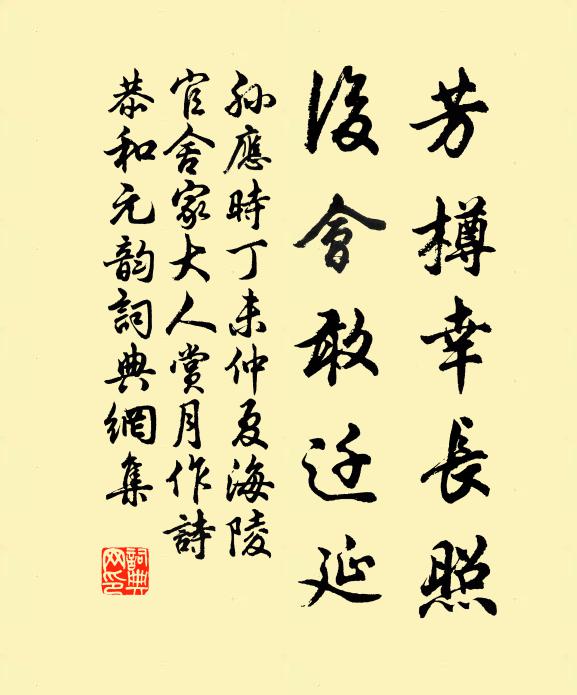 芳樽幸長照
後會敢迁延
孙應時丁未仲夏海陵
官舍家大人賞月作詩
恭和元韵詞典網集
詞典网印